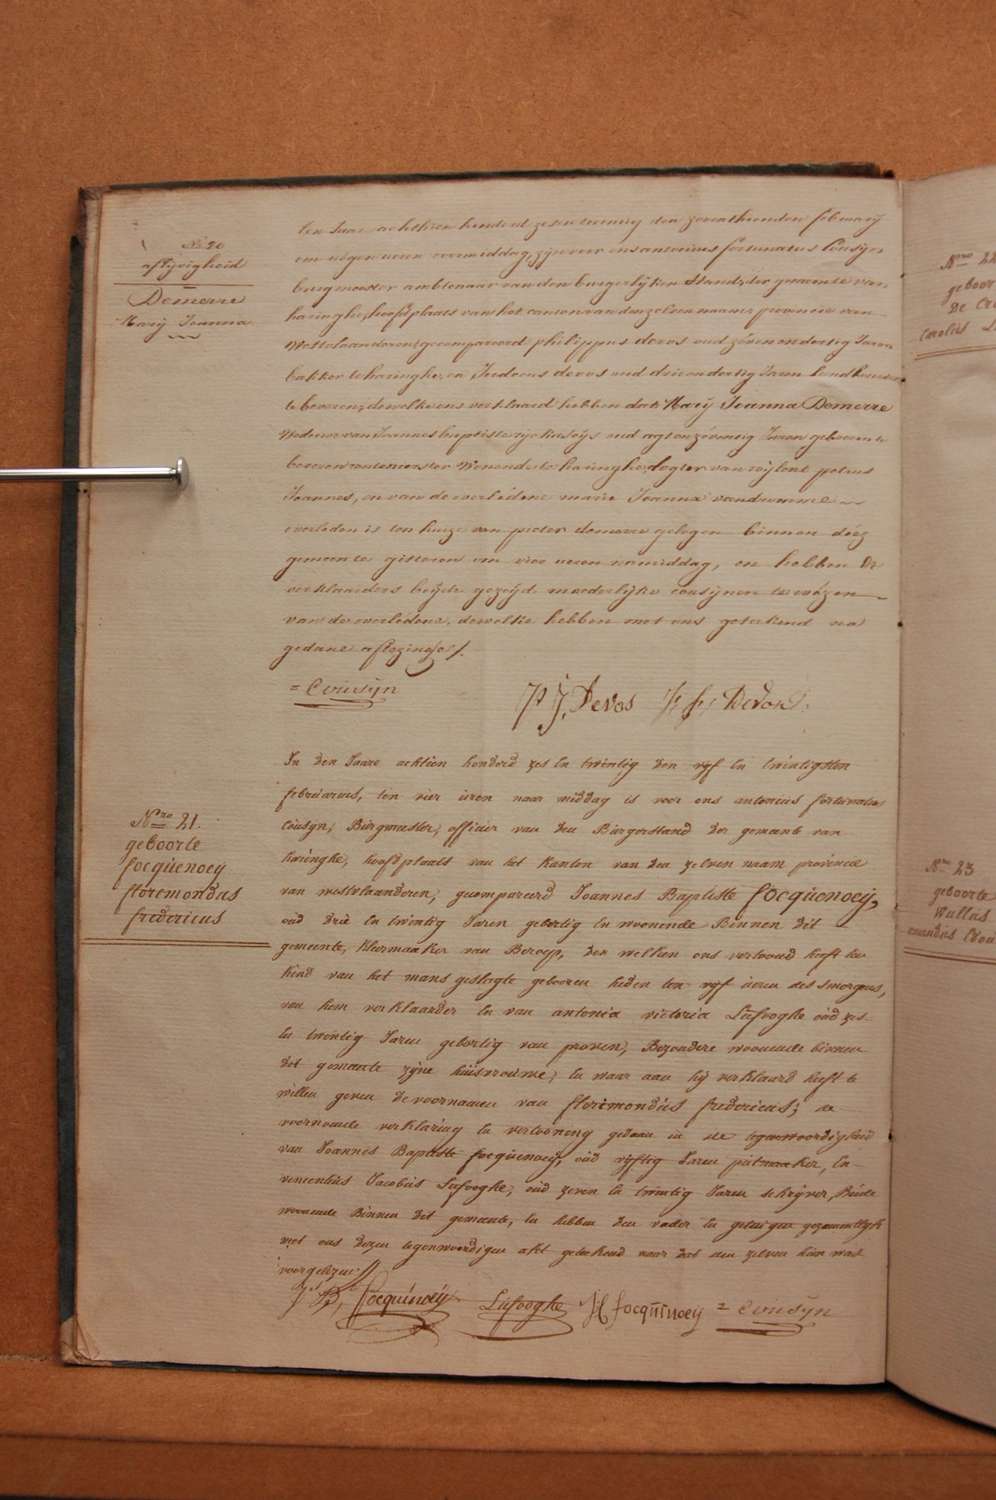 No 20
aflijvigheid
Demerre
Marij Joanna
den Jaere achtien hondert zesentwintig den februarij
om negen uren voormiddag, zijn voor ons antonius fortunatus Cousijn
burgmeester ambtenaar van den burgerlijken stand der gemeente van
haringhe, hoofdplaats van het canton van den zelven naeme provincie van
Westvlaanderen, gecompareerd philippus devos oud zeven en dertig Jaren
bakker te haringhe, en devos oud drieendertig Jaren landbouwer
te beveren, dewelke ons verklaerd hebben dat Marij Joanna Demerre
Weduwe van Joannes baptiste oud agtenzeventig Jaren geboren te
beveren woonende te haringhe, dogter van wijlent petrus
Joannes, en van de overledene marie Joanna
overleden is ten huize van pieter demerre gelegen binnen deze
gemeente gisteren om vier uren namiddag, en hebben de
verklaerders beijde gezeijd moederlijke cousijnen te wézen
van de overledene, dewelke hebben met ons geteekend na
gedane aflezinge.
= Cousijn
P J, Devos Devos
Nro 21.
geboorte
focquenoeij
floremondus
fredericus
In den Jaare achtien honderd zes en twintig den vijf en twintigsten
februarius, ten vier uren naar middag is voor ons antonius fortunatus
Cousyn, Burgmeester, officier van den Burgerstand der gemeente van
haringhe, hoofdplaats van het kanton van den zelven naam provincie
van westvlaanderen, gecompareerd Joannes Baptiste focquenoeij,
oud drie en twintig Jaren gebortig en woonende Binnen dit
gemeente, kleermaaker van Beroep, den welken ons vertoond heeft een
kind van het mans geslagte gebooren heden ten vijf uren des smorgens,
van hem verklaarder en van antonia victoria Lafooghe oud zes
en twintig Jaren gebortig van proven, Bezondere woonende binnen
dit gemeente zijne huisvrouwe, en waar aan hij verklaard heeft te
willen geven de voornaamen van floremondus fredericus; de
voornoemde verklaring en vertooning gedaan in de tegenwoordigheid
van Joannes Baptiste focquenoeij, oud vijftig Jaren, en
vencentius Jacobus Lafooghe, oud zeven en twintig Jaren schrijver, Beide
woonende Binnen dit gemeente, en hebben den vader en getuigen gezamentlyk
met ons dezen tegenwoordigen akt geteekend naar dat den zelven hun was
voorgelezen.
J B, focquinoeij Lafooghe focquinoeij = Cousyn
Nro 22
geboor
De Cr
Carolus L
Nro 23
geboorte
Wallus